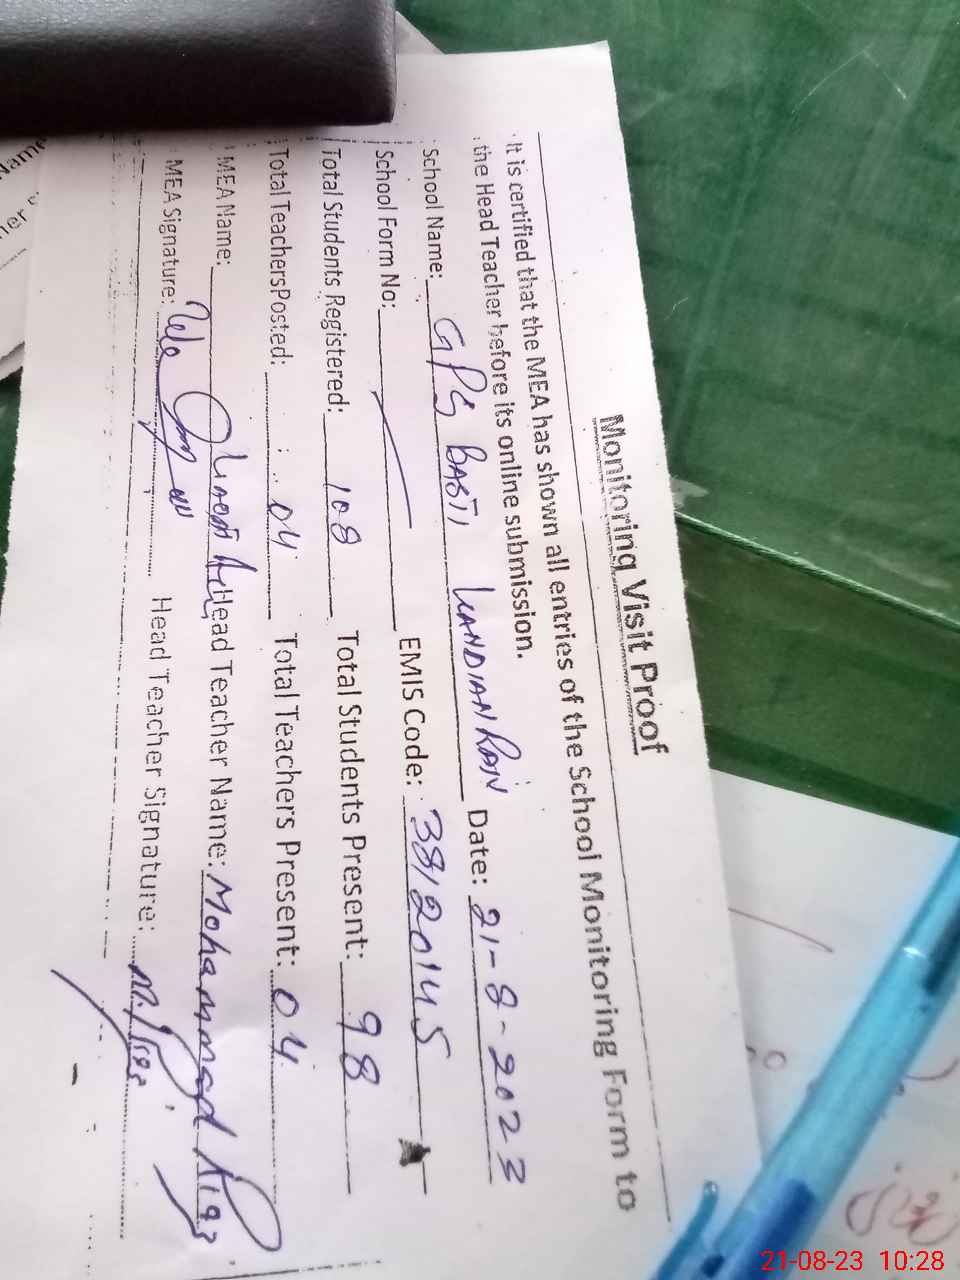 Monitoring Visit Proof
It is certified that the MEA has shown all entries of the School Monitoring Form to
the Head Teacher before its online submission.
School Name: GPS BASTI Date: 21-8-2023
School Form No: EMIS Code: 38120145
Total Students Registered: 108 Total Students Present: 98
Total TeachersPosted: 04 Total Teachers Present: 04
MEA Name: Head Teacher Name: Mohammad Riaz
MEA Signature: Head Teacher Signature: M. Riaz
21-08-23 10:28